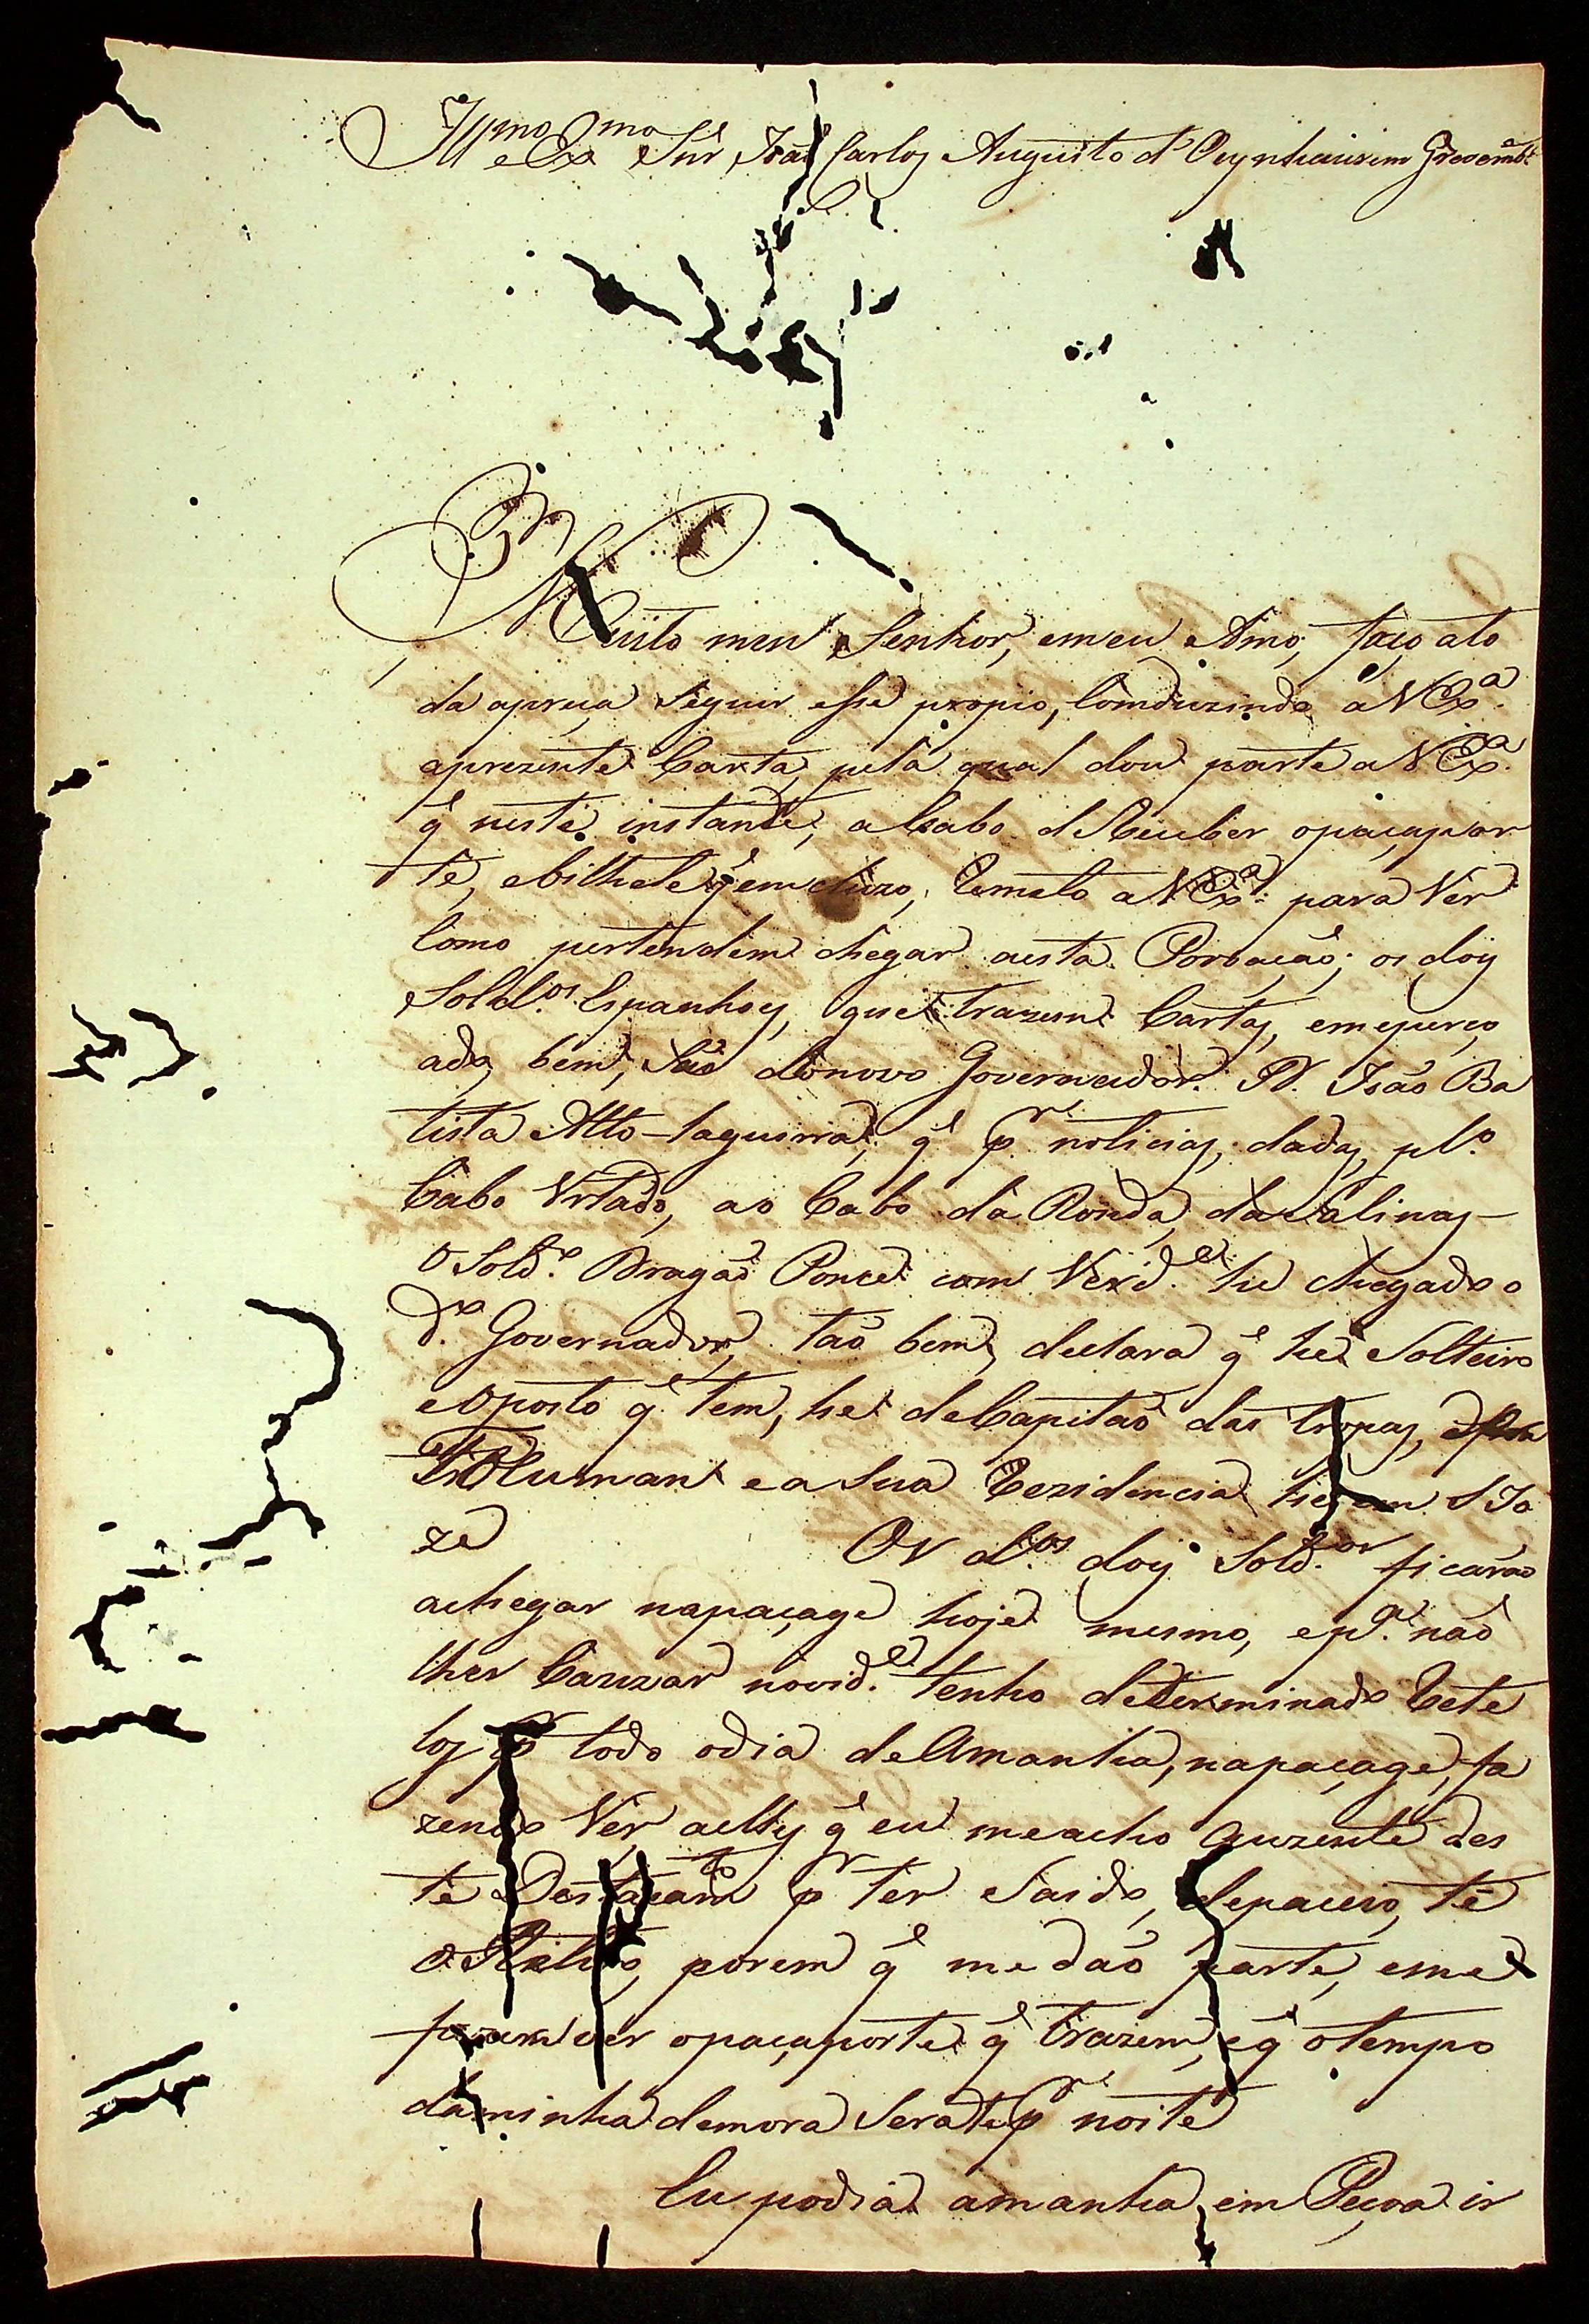 Illmo e Exmo Snr João Carlos Augusto d'Oeynhausem
Muito meu Senhor, emeu Amo, faço ato
da apreça seguir esse propio, Comduzindo a VExa.
aprezente Carta, pela qual dou parte a VExa.
q̃ neste instante, acabo de Receber opaçapor
te, ebilhete q̃ emcluzo, Remeto a VExa. para Ver
Como pertendem chegar aesta Povoação; os dois
Soldos. Espanhoes, que trazem Cartas,
adas, bem, São donovo Governador. D. João Ba
tista Alto-laguirra, q̃ pr. noticias, dadas, plo.
Cabo Vrtado, ao Cabo da Ronda, da Salinas-
O Soldo. Dragaõ Ponce com Verde. he chegado o
do. Governador, taõ bem, declara q̃ he Solteiro
eoposto q̃ tem, he deCapitaõ das tropas,
Tucluman e a Sua Rezidencia he em S Jo
ze
Os dos. dois Soldos. ficaraõ
achegar napaçage hoje mesmo, epa. naõ
lhes Cauzar novide. tenho determinado Rete
los pr todo odia deAmanha, napaçage, fa
zendo Ver, aelles q̃ eu meacho auzente des
te Destacamto pr ter Saido, depaceio, té
porem q̃ me daõ parte, eme
fazem ver opaçaporte q̃ trazem, eq̃ otempo
daminha demora Sera té pr noite
Eu podia amanha, em Peçoa ir